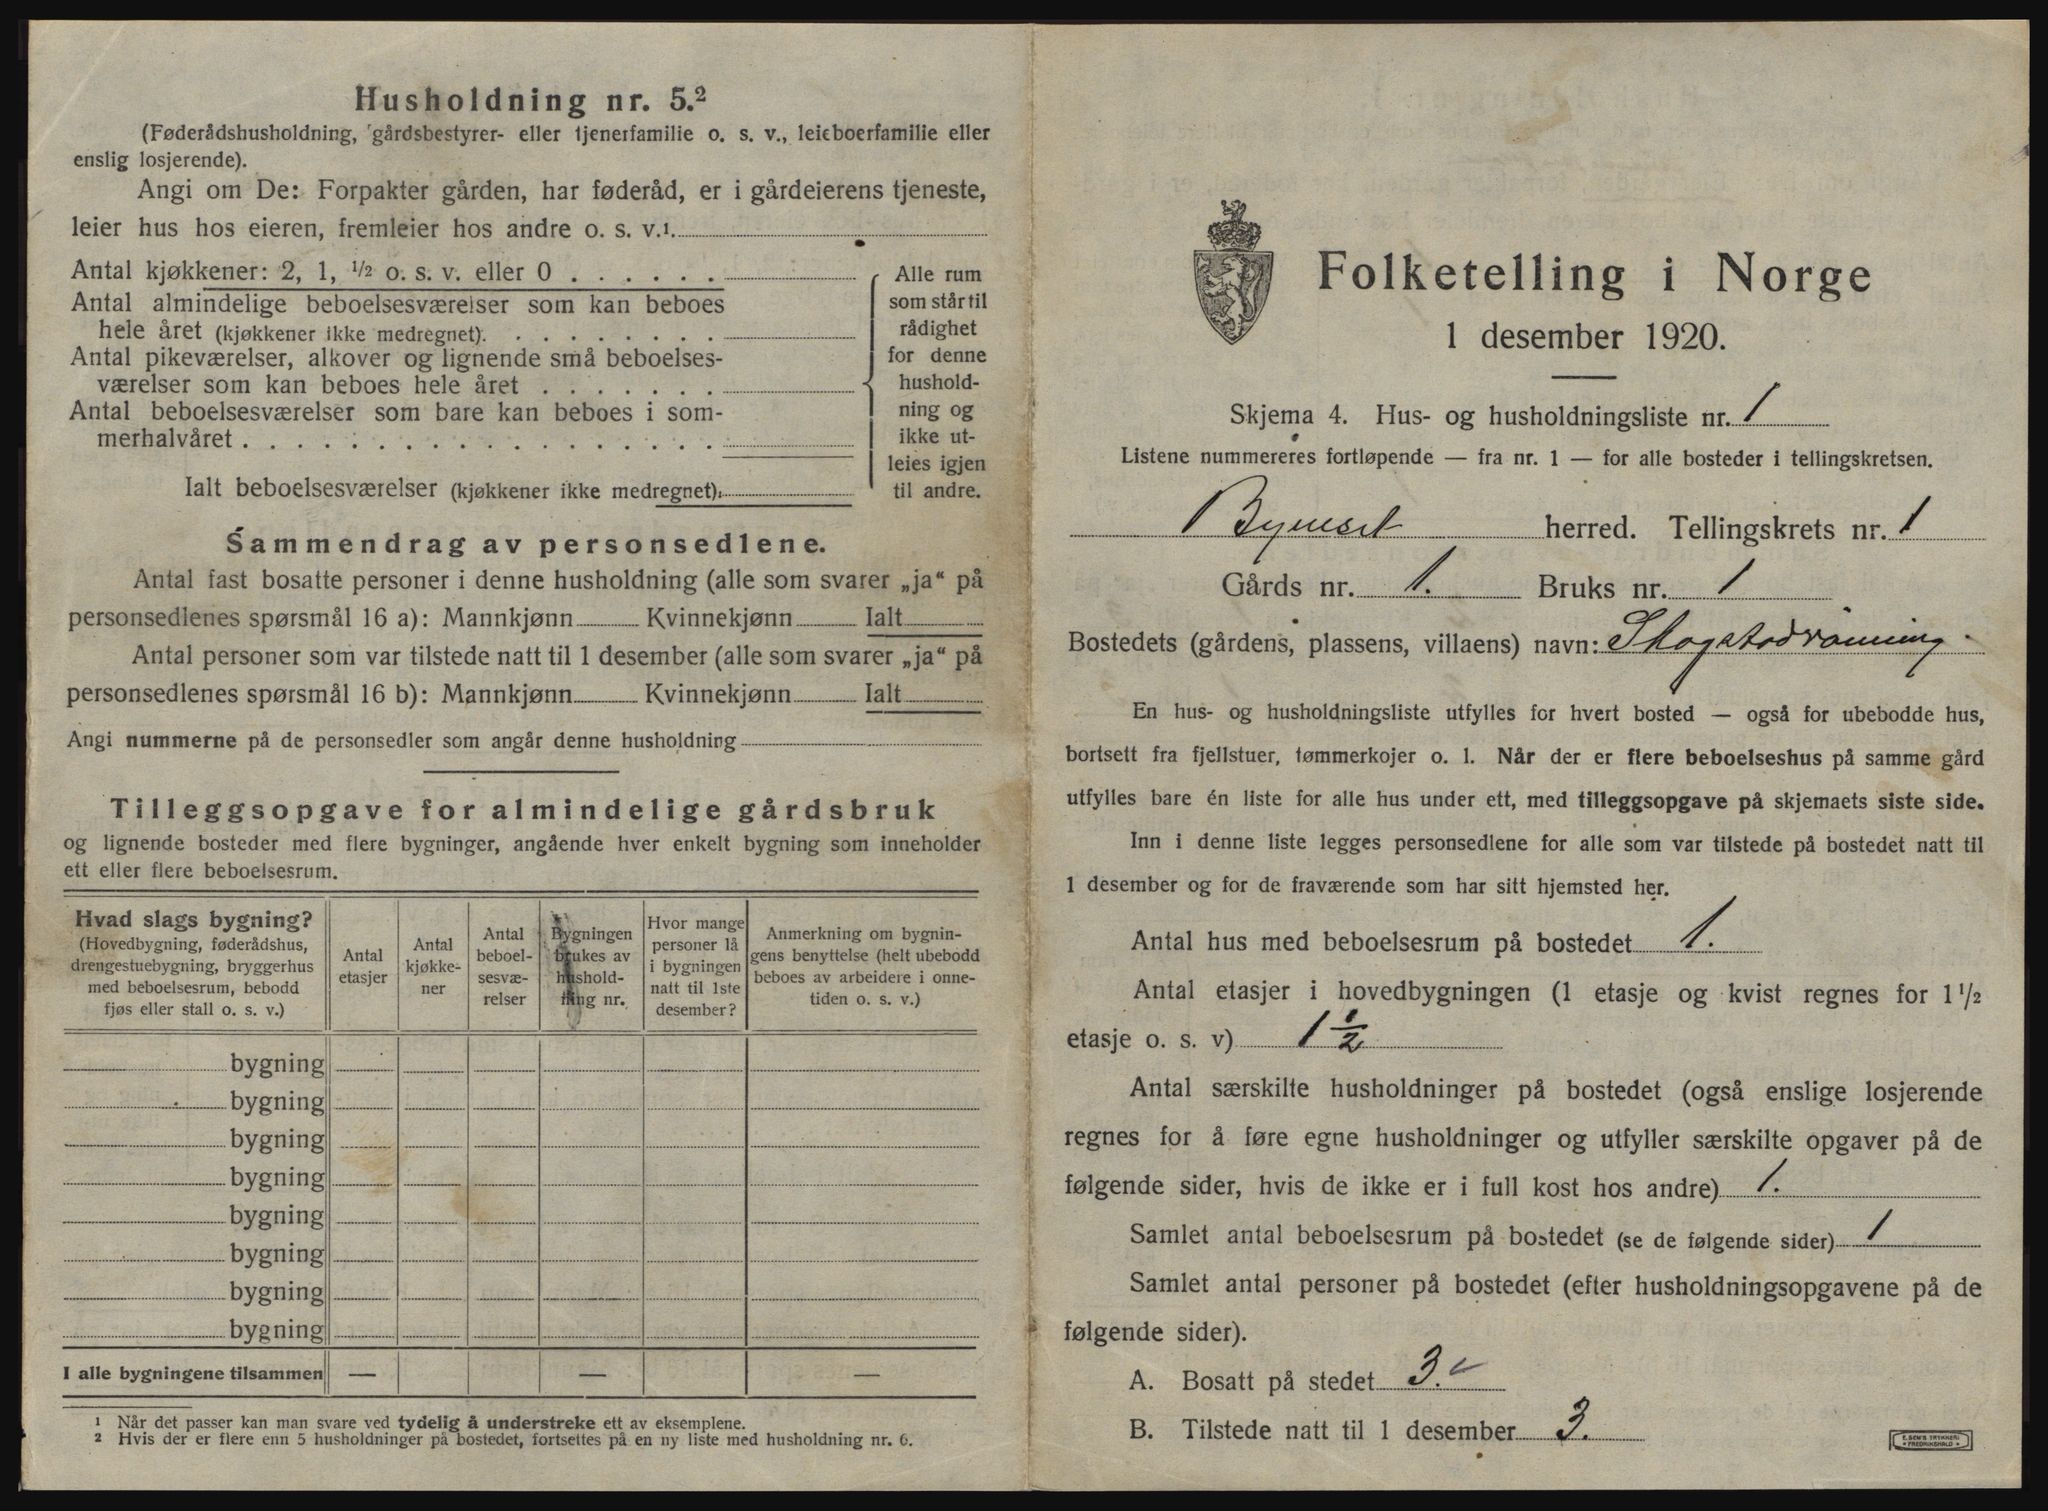 Husholdning nr. 5.²
(Føderådshusholdning, gårdsbestyrer- eller tjenerfamilie o. s. v., leieboerfamilie eller
enslig losjerende).
Angi om De: Forpakter gården, har føderåd, er i gårdeierens tjeneste,
leier hus hos eieren, fremleier hos andre o. s. v.¹
Antal kjøkkener: 2, 1, ½ o. s. v. eller 0 . . . . . .
Antal almindelige beboelsesværelser som kan beboes
hele året (kjøkkener ikke medregnet). . . . . . . . .
Antal pikeværelser, alkover og lignende små beboelses-
værelser som kan beboes hele året . . . . . . .
Antal beboelsesværelser som bare kan beboes i som-
merhalvåret . . . . . . . . . . . . . . . . . .
Ialt beboelsesværelser (kjøkkener ikke medregnet):
Alle rum
som står til
rådighet
for denne
hushold-
ning og
ikke ut-
leies igjen
til andre.
Sammendrag av personsedlene.
Antal fast bosatte personer i denne husholdning (alle som svarer „ja“ på
personsedlenes spørsmål 16 a): Mannkjønn Kvinnekjønn Ialt
Antal personer som var tilstede natt til 1 desember (alle som svarer „ja“ på
personsedlenes spørsmål 16 b): Mannkjønn Kvinnekjønn Ialt
Angi nummerne på de personsedler som angår denne husholdning
Tilleggsopgave for almindelige gårdsbruk
og lignende bosteder med flere bygninger, angående hver enkelt bygning som inneholder
ett eller flere beboelsesrum.
Hvad slags bygning?
(Hovedbygning, føderådshus,
drengestuebygning, bryggerhus
med beboelsesrum, bebodd
fjøs eller stall o. s. v.)
Antal
etasjer
Antal
kjøkke-
ner
Antal
beboel-
sesvæ-
relser
Bygningen
brukes av
hushold-
ning nr.
Hvor mange
personer lå
i bygningen
natt til 1ste
desember?
Anmerkning om bygnin-
gens benyttelse (helt ubebodd
beboes av arbeidere i onne-
tiden o. s. v.)
bygning
bygning
bygning
bygning
bygning
bygning
bygning
bygning
I alle bygningene tilsammen — — —
¹ Når det passer kan man svare ved tydelig å understreke ett av eksemplene.
² Hvis der er flere enn 5 husholdninger på bostedet, fortsettes på en ny liste med husholdning nr. 6.
Folketelling i Norge
1 desember 1920.
Skjema 4. Hus- og husholdningsliste nr. 1
Listene nummereres fortløpende — fra nr. 1 — for alle bosteder i tellingskretsen.
Byneset herred. Tellingskrets nr. 1
Gårds nr. 1. Bruks nr. 1
Bostedets (gårdens, plassens, villaens) navn: Skogstadrønning.
En hus- og husholdningsliste utfylles for hvert bosted — også for ubebodde hus,
bortsett fra fjellstuer, tømmerkojer o. l. Når der er flere beboelseshus på samme gård
utfylles bare én liste for alle hus under ett, med tilleggsopgave på skjemaets siste side.
Inn i denne liste legges personsedlene for alle som var tilstede på bostedet natt til
1 desember og for de fraværende som har sitt hjemsted her.
Antal hus med beboelsesrum på bostedet 1.
Antal etasjer i hovedbygningen (1 etasje og kvist regnes for 1 ½
etasje o. s. v) 1 ½
Antal særskilte husholdninger på bostedet (også enslige losjerende
regnes for å føre egne husholdninger og utfyller særskilte opgaver på de
følgende sider, hvis de ikke er i full kost hos andre) 1.
Samlet antal beboelsesrum på bostedet (se de følgende sider) 1
Samlet antal personer på bostedet (efter husholdningsopgavene på de
følgende sider).
A. Bosatt på stedet 3.
B. Tilstede natt til 1 desember 3.
E. SEM'S TRYKKERI
• FREDRIKSHALD •